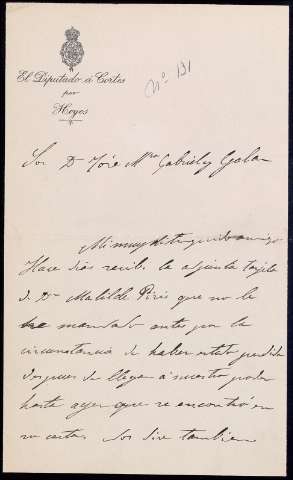 El Diputado á Cortes
por
Hoyos
Nº 131
Sor Dn José Mª Gabriel y Galan
Mi muy distinguido amigo
Hace dias recibi la adjunta tarjeta
de Dª Matilde que no le
he mandado antes por la
circunstancia de haber estado perdida
despues de llegar á nuestro poder
hasta ayer que se encontró en
su carta. Nos dice tambien